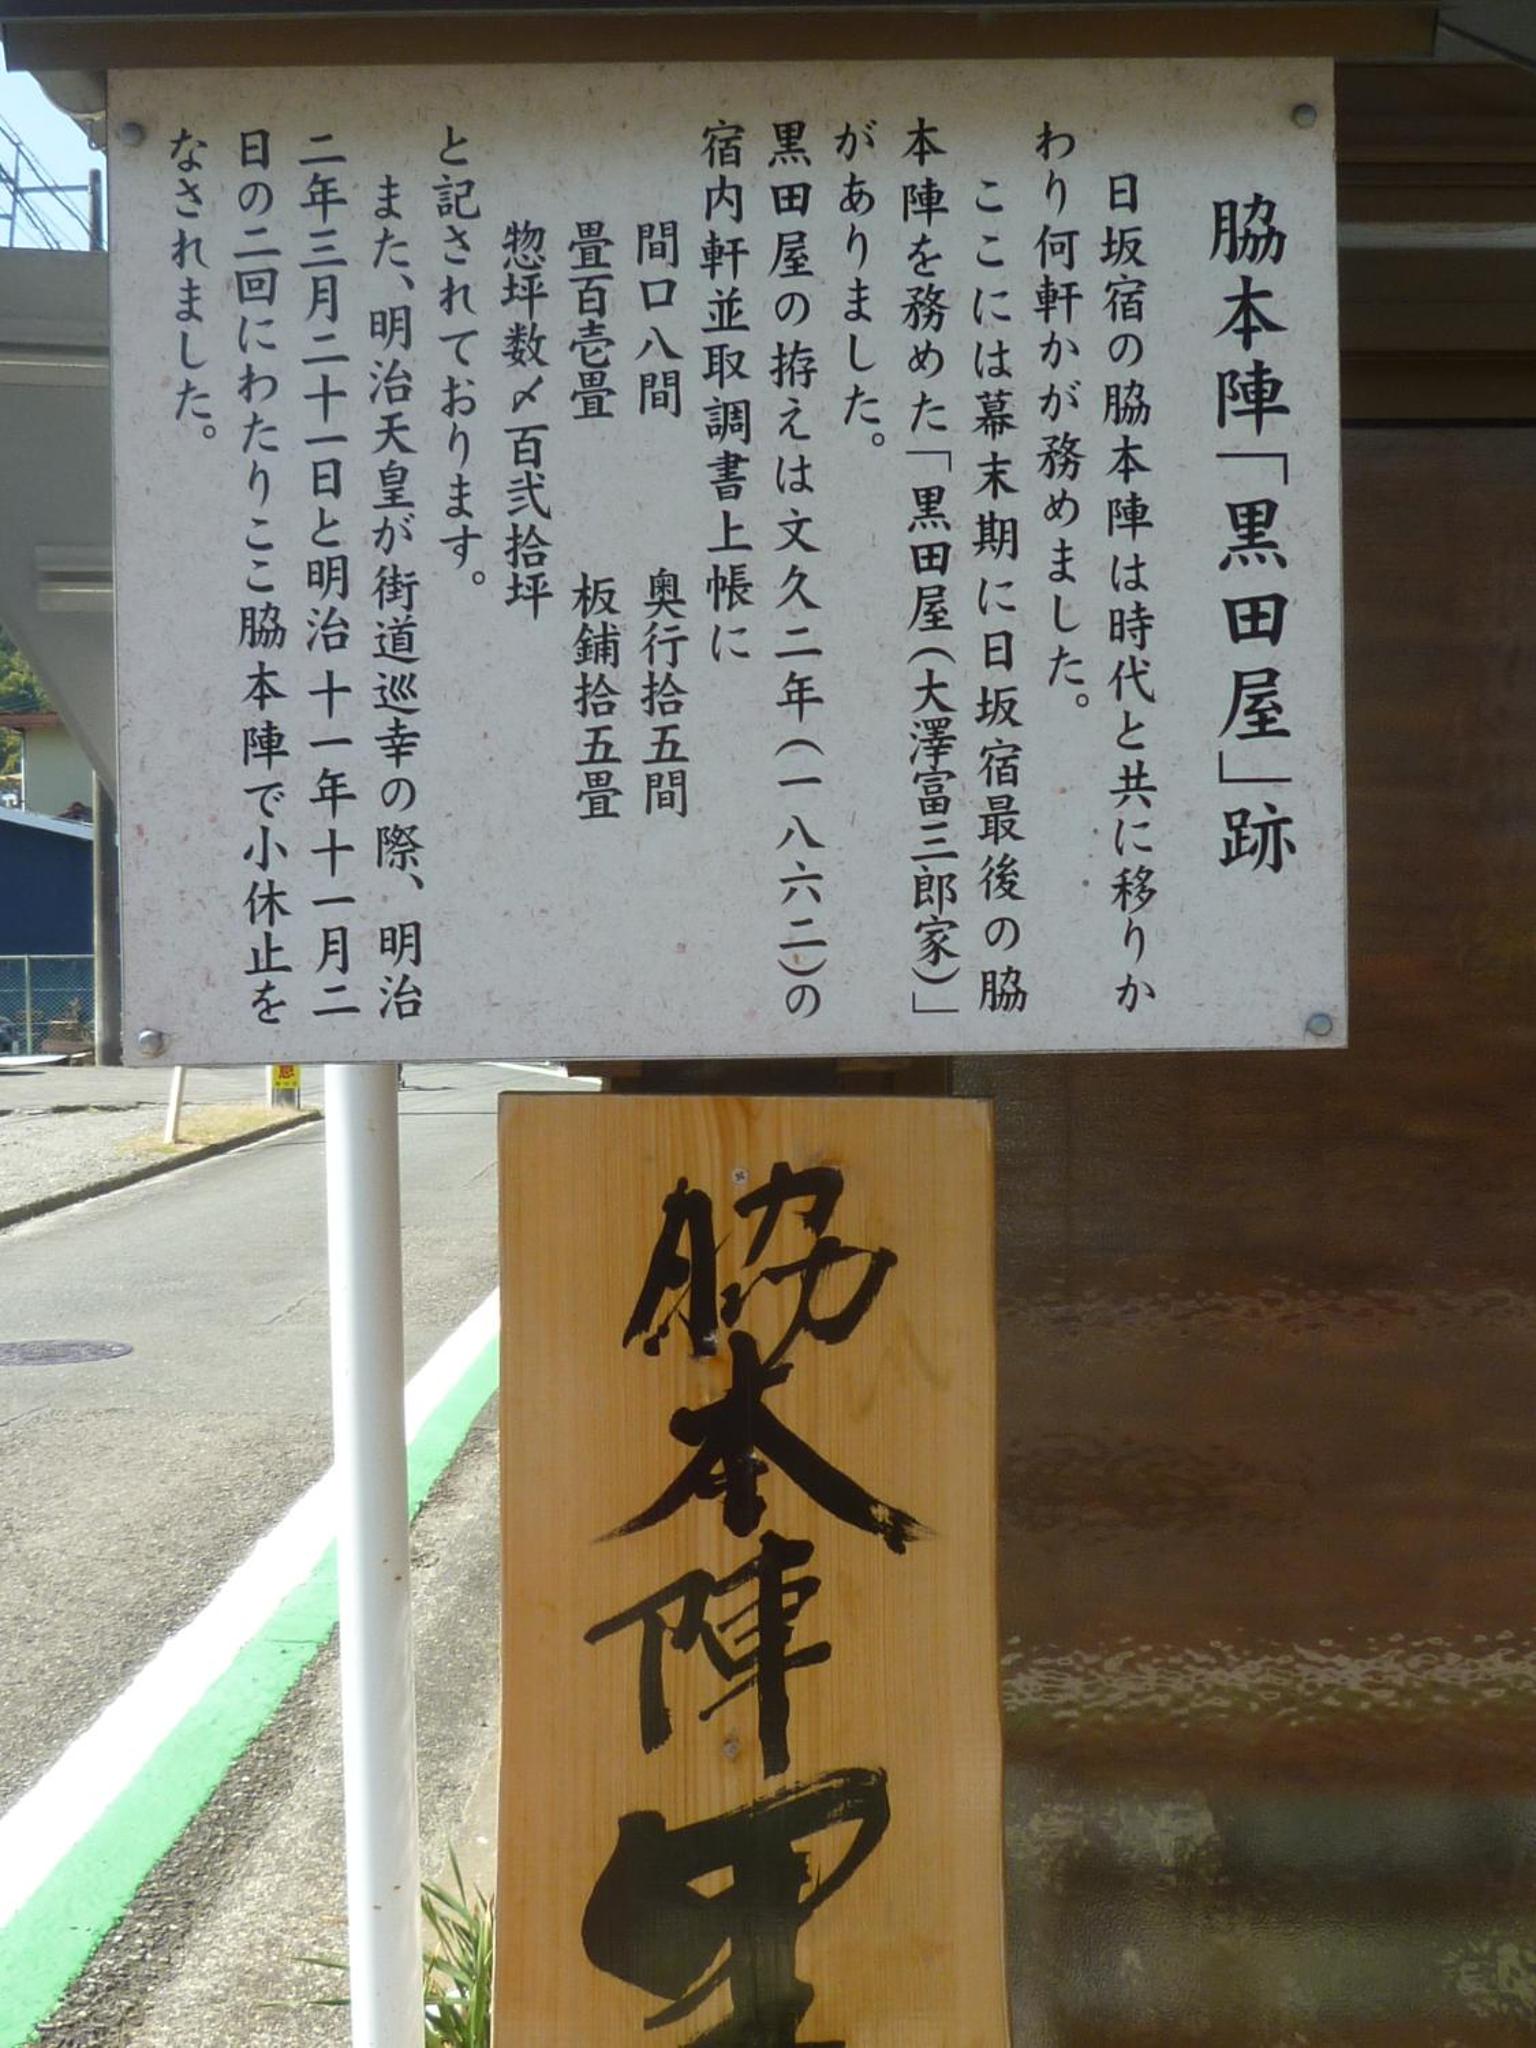 脇本陣「黒田屋」跡
日坂宿の脇本陣は時代と共に移りか
わり何軒かが務めました。
ここには幕末期に日坂宿最後の脇
本陣を務めた「黒田屋(大澤富三郎家)」
がありました。
黒田屋の拵えは文久二年(一八六二)の
宿内軒並取調書上帳に
間口八間 奥行拾五間
畳百壱畳 板鋪拾五畳
惣坪数〆百弐拾坪
と記されております。
また、明治天皇が街道巡幸の際、明治
二年三月二十一日と明治十一年十一月二
日の二回にわたりここ脇本陣で小休止を
なされました。
脇本陣黒